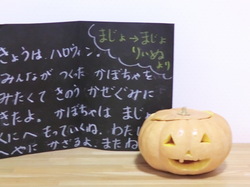 まじょ→まじょ
りいぬ
より
きょうは、ハロウィン。
みんなが つくた かぼちゃを
みたくて きのう かぜぐみに
きたよ。 かぼちゃは まじょ
くにへ もっていくね。わたし
へやに かざるよ。またね